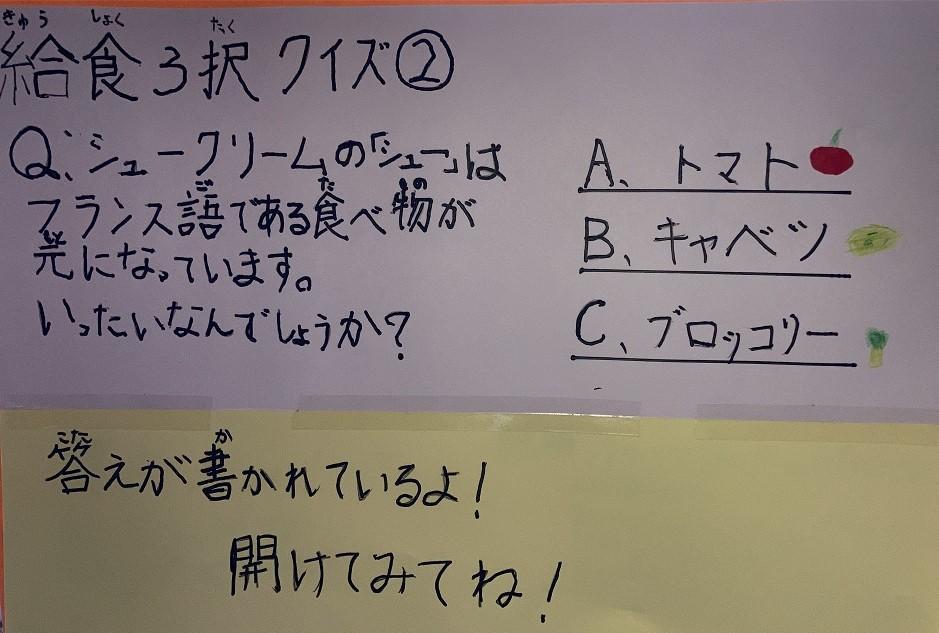 きゅう しょく たく
給食3択クイズ②
Q、シュークリームの「シュー」は
ご た もの
フランス語である食べ物が
もと
元になっています。
いったいなんでしょうか?
A、トマト
B、キャベツ
C、ブロッコリー
こた か
答えが書かれているよ!
開けてみてね!